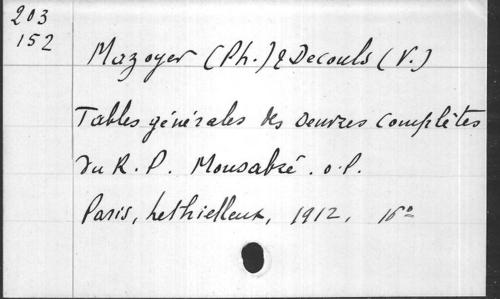 203
152
Mazoyer (Ph.) & Decouls (V.)
Tables générales des oeuvres complètes
du R. P. Monsabré. o.P.
Paris, Lethielleux, 1912, 16°